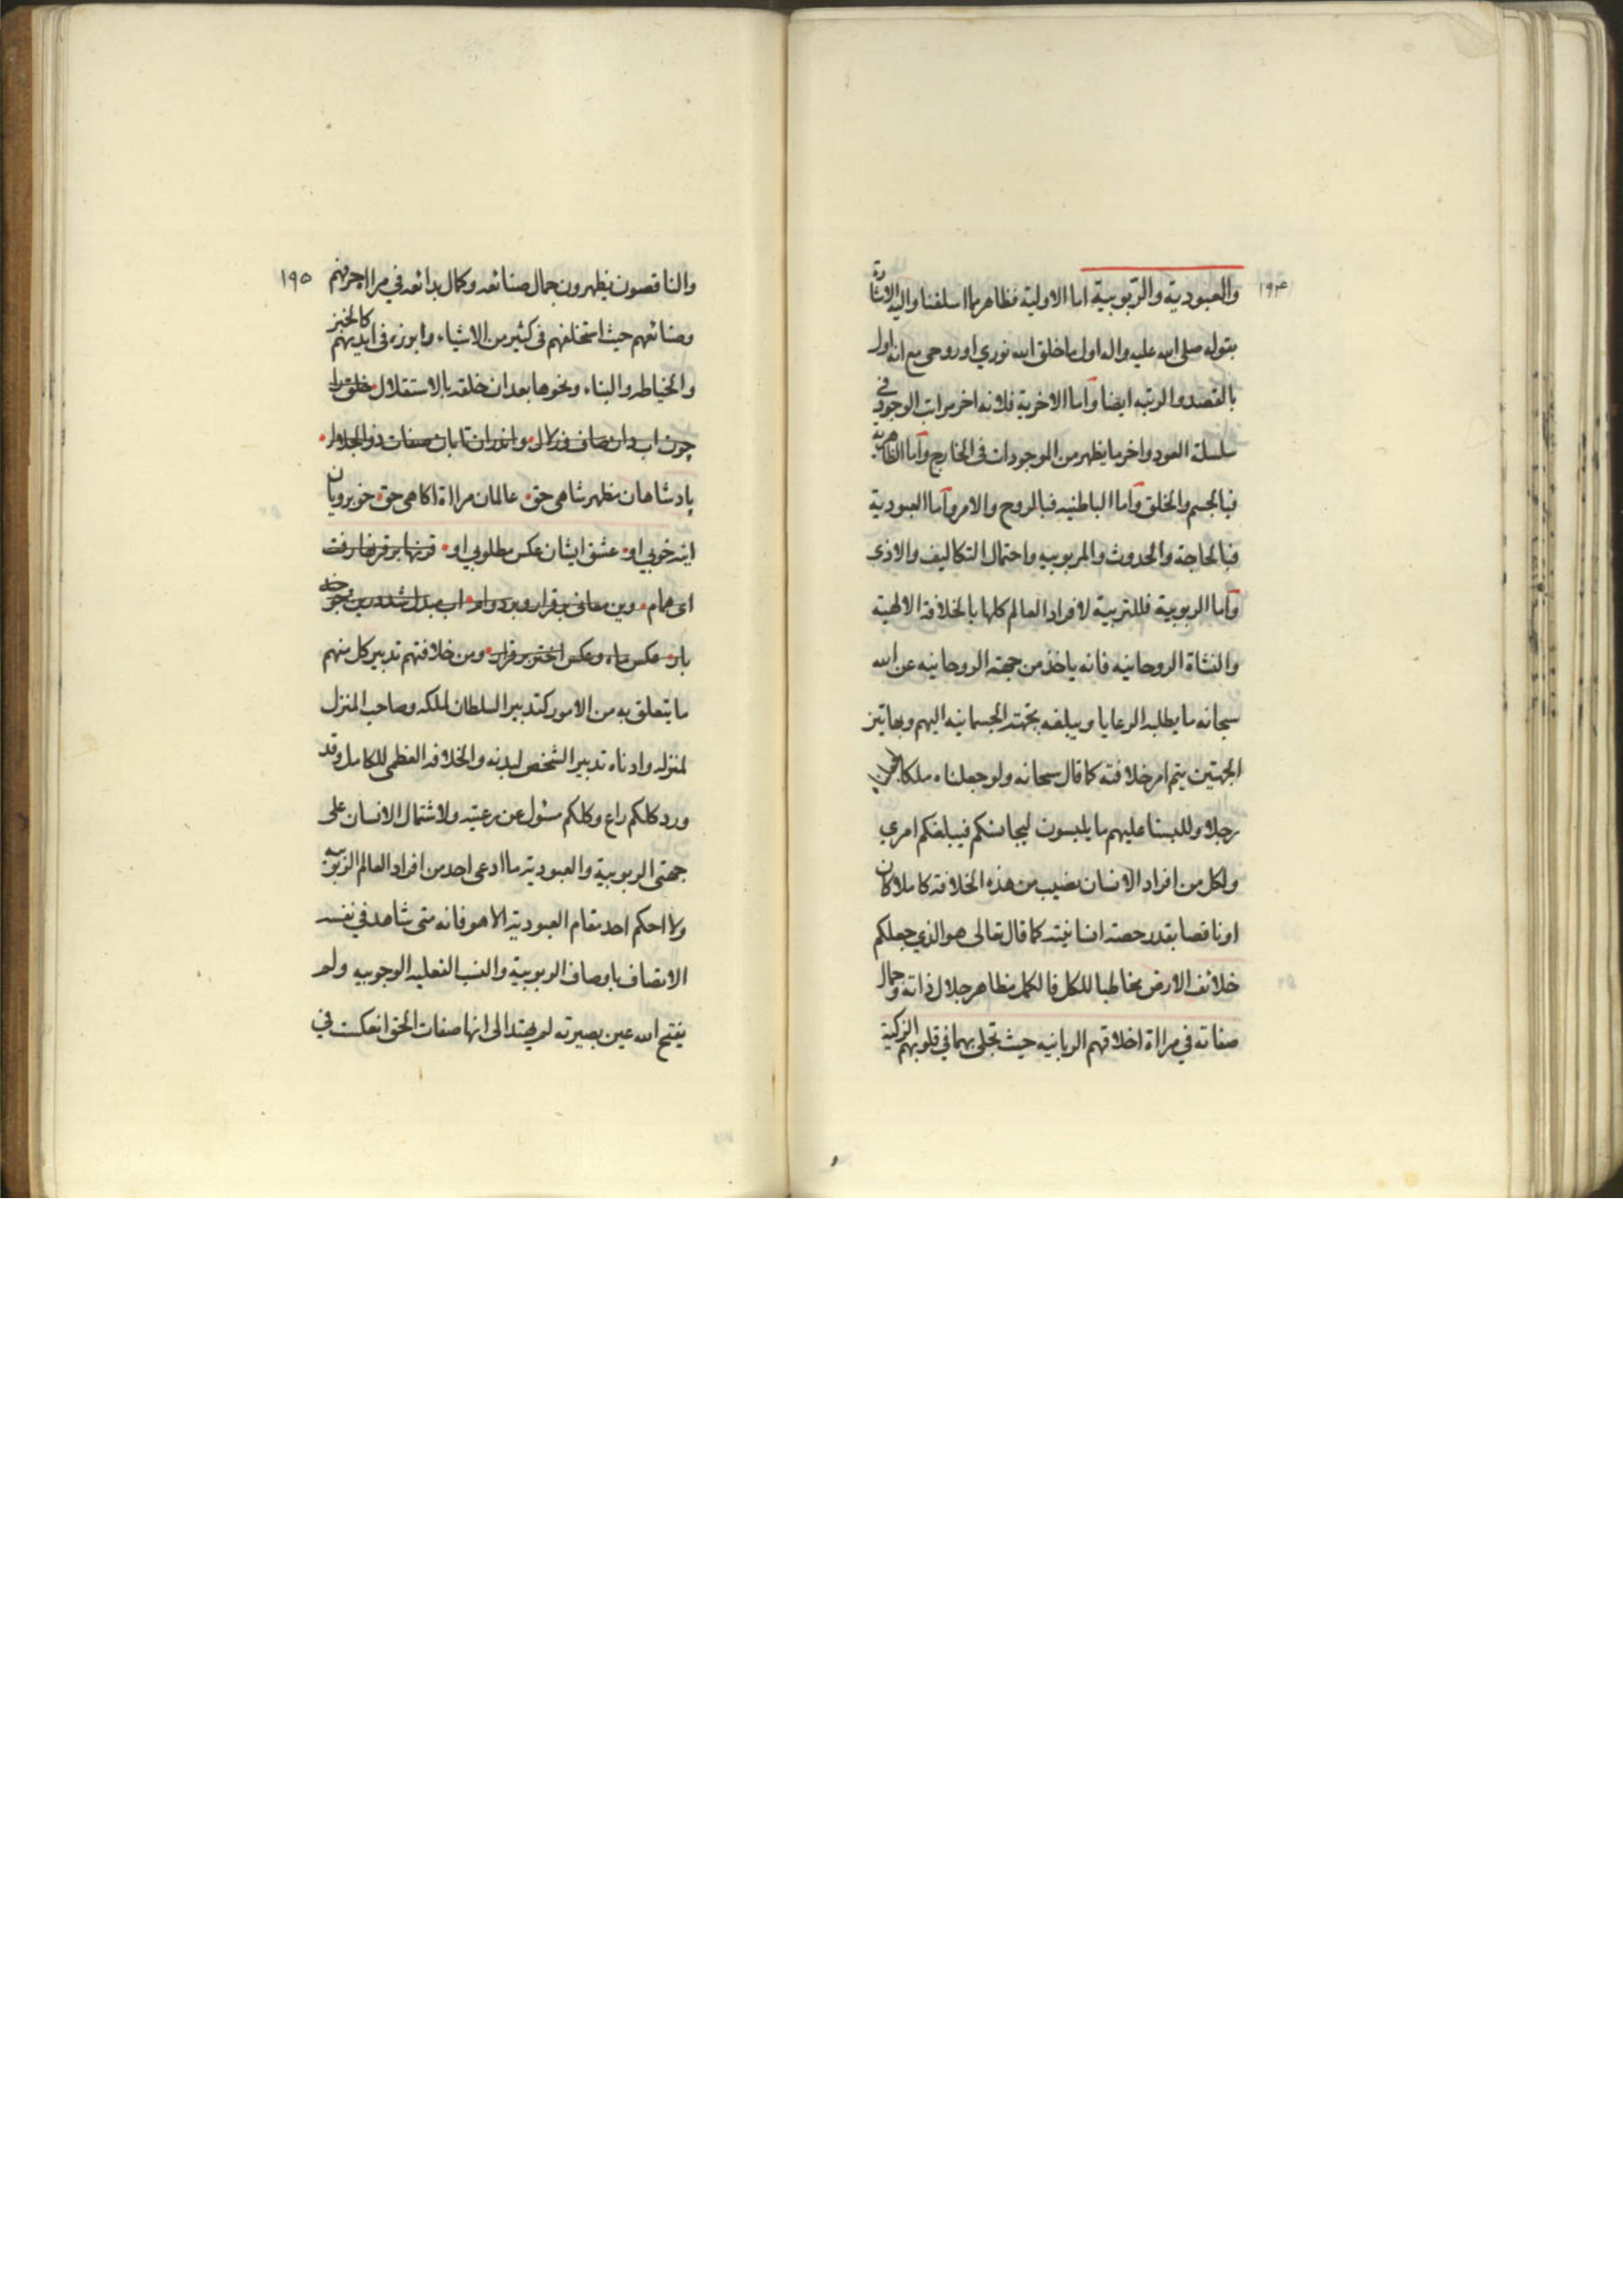 ١٩٤
والعبودية والربوبية اما الاولية فظاهر مما اسلفنا واليه الاشارة
بقوله صلى الله عليه واله اول ما خلق الله نوري او روحي مع انه اول
بالقصد والرتبه ايضا واما الاخرية فلانه اخر مراتب الوجود في
سلسلة العود واخر ما يظهر من الموجودات في الخارج واما الظاهرية
فبالجسم والخلق واما الباطنيه فبالروح والامر واما العبودية
فبالحاجة والحدوث والمربوبيه واحتمال التكاليف والاذى
واما الربوبية فللتربية لافراد العالم كلها بالخلافة الالهية
والنشاة الروحانيه فانه ياخذ من جهته الروحانيه عن الله
سبحانه ما يطلبه الرعايا ويبلغه بجهته الجسمانيه اليهم وبهاتين
الجهتين يتم امر خلافته كما قال سبحانه ولو جعلناه ملكا لجعلناه
رجلا وللبسنا عليهم ما يلبسون ليجانسكم فيبلغكم امري
ولكل من افراد الانسان نصيب من هذه الخلافة كاملا كان
او ناقصا بقدر حصة انسانيته كما قال تعالى هو الذي جعلكم
خلائف الارض مخاطبا للكل فالكمل مظاهر جلال ذاته وجمال
صفاته في مراة اخلاقهم الربانيه حيث تجلى بهما في قلوبهم الزكية
١٩٥
والناقصون يظهرون جمال صنائعه وكمال بدائعه في مرايا حرفهم
وصنائعهم حيث استخلفهم في كثير من الاشياء وابرزه في ايديهم كالخبز
والخياطه والبناء ونحوها بعد ان خلقه بالاستقلال خلق را
چون اب دان صاف وزلال واندران تابان صفات ذو الجلال
پادشاهان مظهر شاهى حق عالمان مراة اكاهى حق خوبرويان
اينه خوبى او عشق ايشان عكس مطلوبى او قرنها بر قرنها رفت
اى همام وين معانى بر قرار وبر دوام اب مبدل شد درين جو چند
بار عكس ماه وعكس اختر بر قرار ومن خلافتهم تدبير كل منهم
ما يتعلق به من الامور كتدبير السلطان لملكه وصاحب المنزل
لمنزله وادناه تدبير الشخص لبدنه والخلافه العظمى للكامل وقد
ورد كلكم راع وكلكم مسئول عن رعيته ولاشتمال الانسان على
جهتى الربوبية والعبودية ما ادعى احد من افراد العالم الربوبيه
ولا احكم احد مقام العبودية الا هو فانه متى شاهد في نفسه
الاتصاف باوصاف الربوبية والنسب الفعليه الوجوبيه ولم
يفتح الله عين بصيرته لم يهتد الى انها صفات الحق انعكست في